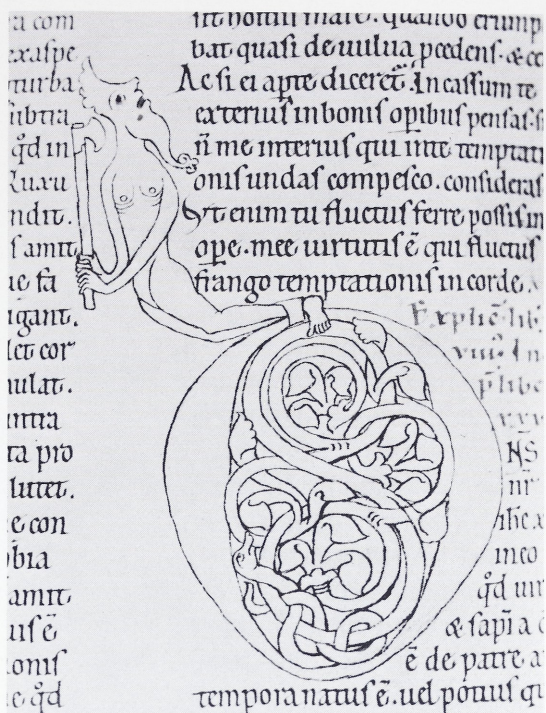 ra com
exaspe
turba
subtra
q̄d in
Luxu
ndit.
s amit
ue fa
igant.
let cor
nulat.
intra
ta pro
lutet.
e con
obia
amit
uis ē
onis
e q̄d
bat quasi de uulua p̄cedens. ⁊ ce
Ac si ei apte dicerēt. In cassum te
exterius in bonis op̄ibus pensas. si
n̄ me interius qui in te temptati
onis undas compesco. consideras
Vt enim tu fluctus ferre possis in
ope. mee uirtutis ē qui fluctus
frango temptationis in corde.
Explic̄ lib
p̄ libe
ihc x
ineo
q̄d uir
⁊ sapi a
ē de patre a
tempora natus ē. uel potius qi